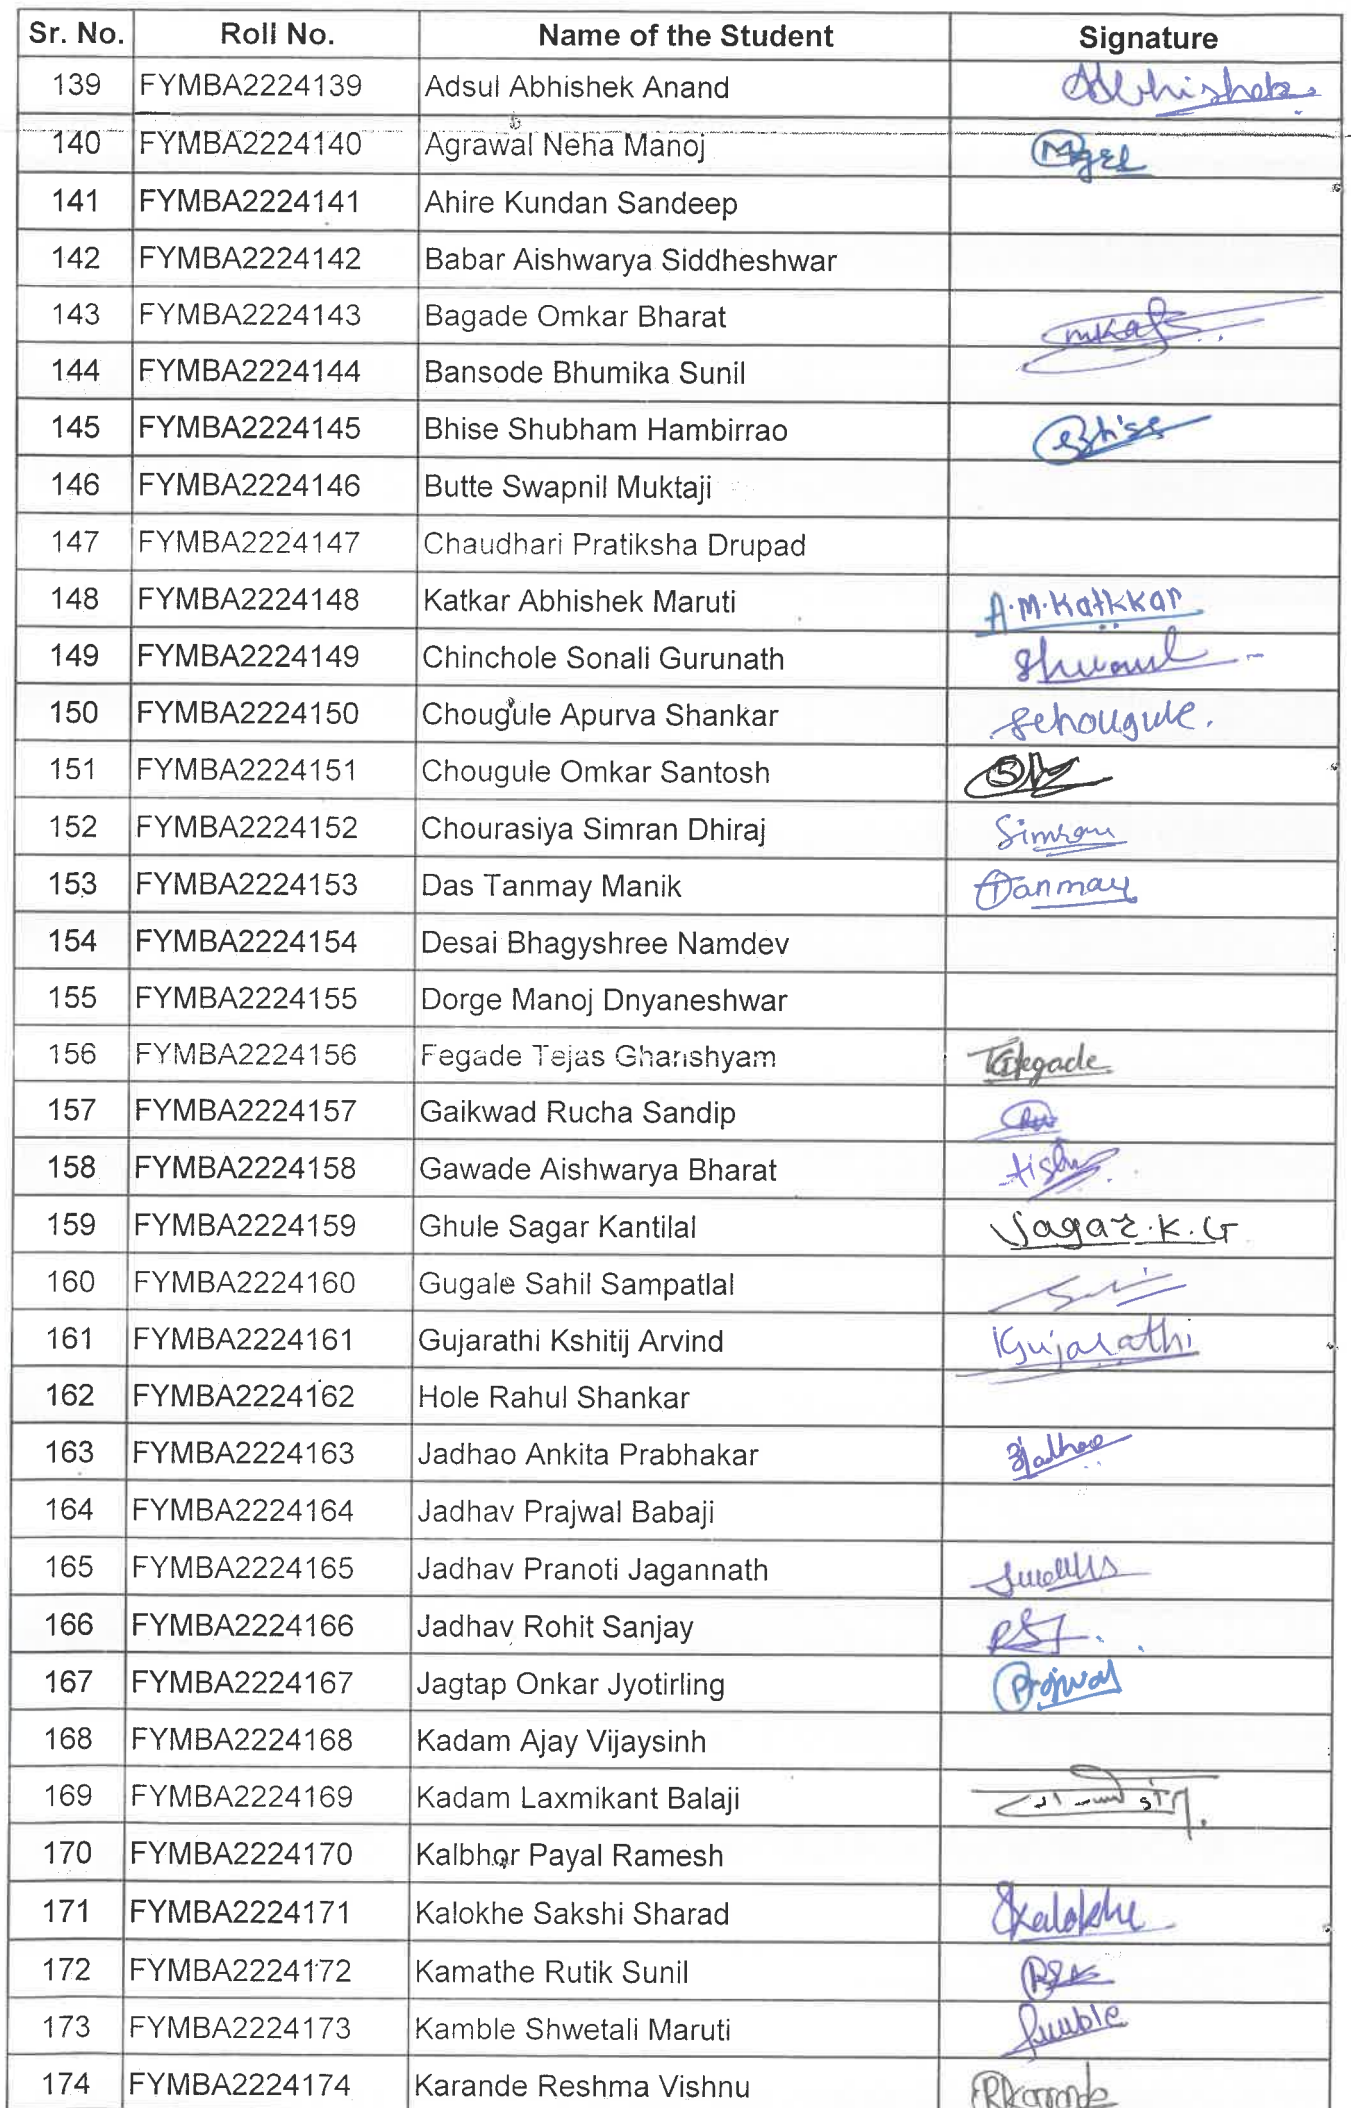 Sr. No. Roll No. Name of the Student Signature
139 FYMBA2224139 Adsul Abhishek Anand Abhishek
140 FYMBA2224140 Agrawal Neha Manoj
141 FYMBA2224141 Ahire Kundan Sandeep
142 FYMBA2224142 Babar Aishwarya Siddheshwar
143 FYMBA2224143 Bagade Omkar Bharat
144 FYMBA2224144 Bansode Bhumika Sunil
145 FYMBA2224145 Bhise Shubham Hambirrao Bhise
146 FYMBA2224146 Butte Swapnil Muktaji
147 FYMBA2224147 Chaudhari Pratiksha Drupad
148 FYMBA2224148 Katkar Abhishek Maruti A.M.Katkkar
149 FYMBA2224149 Chinchole Sonali Gurunath
150 FYMBA2224150 Chougule Apurva Shankar
151 FYMBA2224151 Chougule Omkar Santosh
152 FYMBA2224152 Chourasiya Simran Dhiraj Simran
153 FYMBA2224153 Das Tanmay Manik Tanmay
154 FYMBA2224154 Desai Bhagyshree Namdev
155 FYMBA2224155 Dorge Manoj Dnyaneshwar
156 FYMBA2224156 Fegade Tejas Ghanshyam
157 FYMBA2224157 Gaikwad Rucha Sandip
158 FYMBA2224158 Gawade Aishwarya Bharat
159 FYMBA2224159 Ghule Sagar Kantilal Sagar.K.G
160 FYMBA2224160 Gugale Sahil Sampatlal
161 FYMBA2224161 Gujarathi Kshitij Arvind KGujarathi
162 FYMBA2224162 Hole Rahul Shankar
163 FYMBA2224163 Jadhao Ankita Prabhakar
164 FYMBA2224164 Jadhav Prajwal Babaji
165 FYMBA2224165 Jadhav Pranoti Jagannath
166 FYMBA2224166 Jadhav Rohit Sanjay RSJ
167 FYMBA2224167 Jagtap Onkar Jyotirling Prajwal
168 FYMBA2224168 Kadam Ajay Vijaysinh
169 FYMBA2224169 Kadam Laxmikant Balaji
170 FYMBA2224170 Kalbhor Payal Ramesh
171 FYMBA2224171 Kalokhe Sakshi Sharad SKalokhe
172 FYMBA2224172 Kamathe Rutik Sunil RSK
173 FYMBA2224173 Kamble Shwetali Maruti
174 FYMBA2224174 Karande Reshma Vishnu RKarande